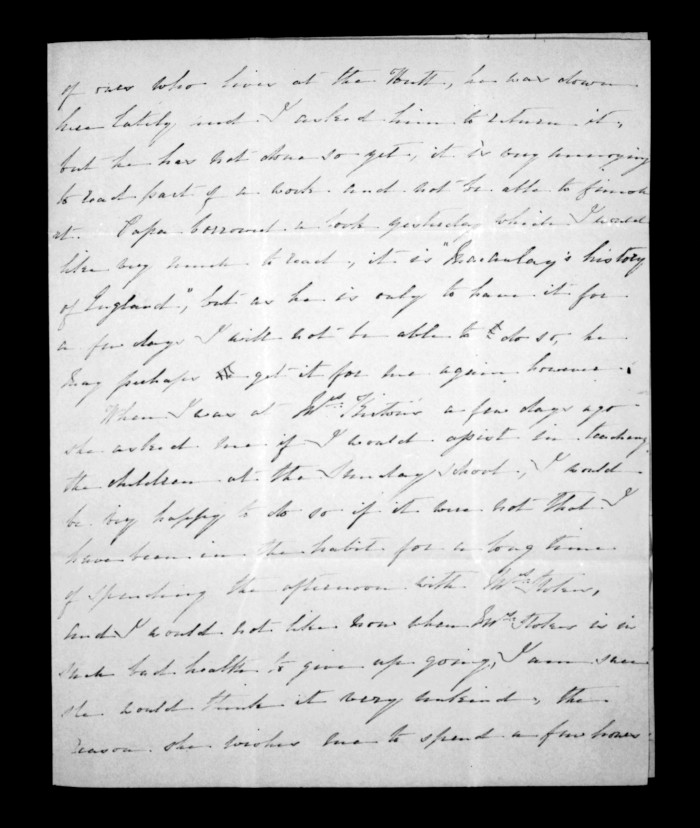 of ours who lives at the Hutt, he was down
here lately and I asked him to return it,
but he has not done so yet, it is very annoying
to read part of a work and not be able to finish
it. Papa borrowed a book yesterday which I would
like very much to read, it is "Macaulay's history
of England", but as he is only to have it for
a few days I will not be able to do so, he
may perhaps get it for me again however.
When I was at Mrs a few days ago
she asked me if I would assist in teaching
the children at the Sunday School, I would
be very happy to do so if it were not that I
have been in the habit for a long time
of spending the afternoon with Mrs Stokes,
and I would not like now when Mrs Stokes is in
such bad health to give up going, I am sure
she would think it very unkind, the
reason she wishes me to spend a few hours